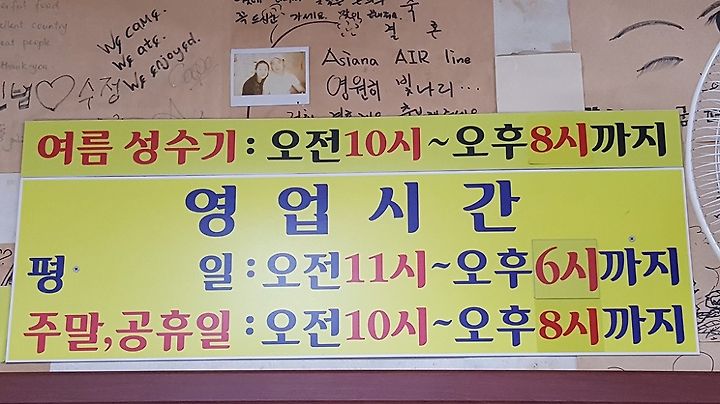 erful food
ellent country
eat people
Thank you
We came.
We ate.
We enjoyed.
수정
가세요.
결혼
Asiana AIR line
영원히 빛나리...
여름 성수기 : 오전10시~오후8시까지
영업시간
평일 : 오전11시~오후6시까지
주말,공휴일 : 오전10시~오후8시까지